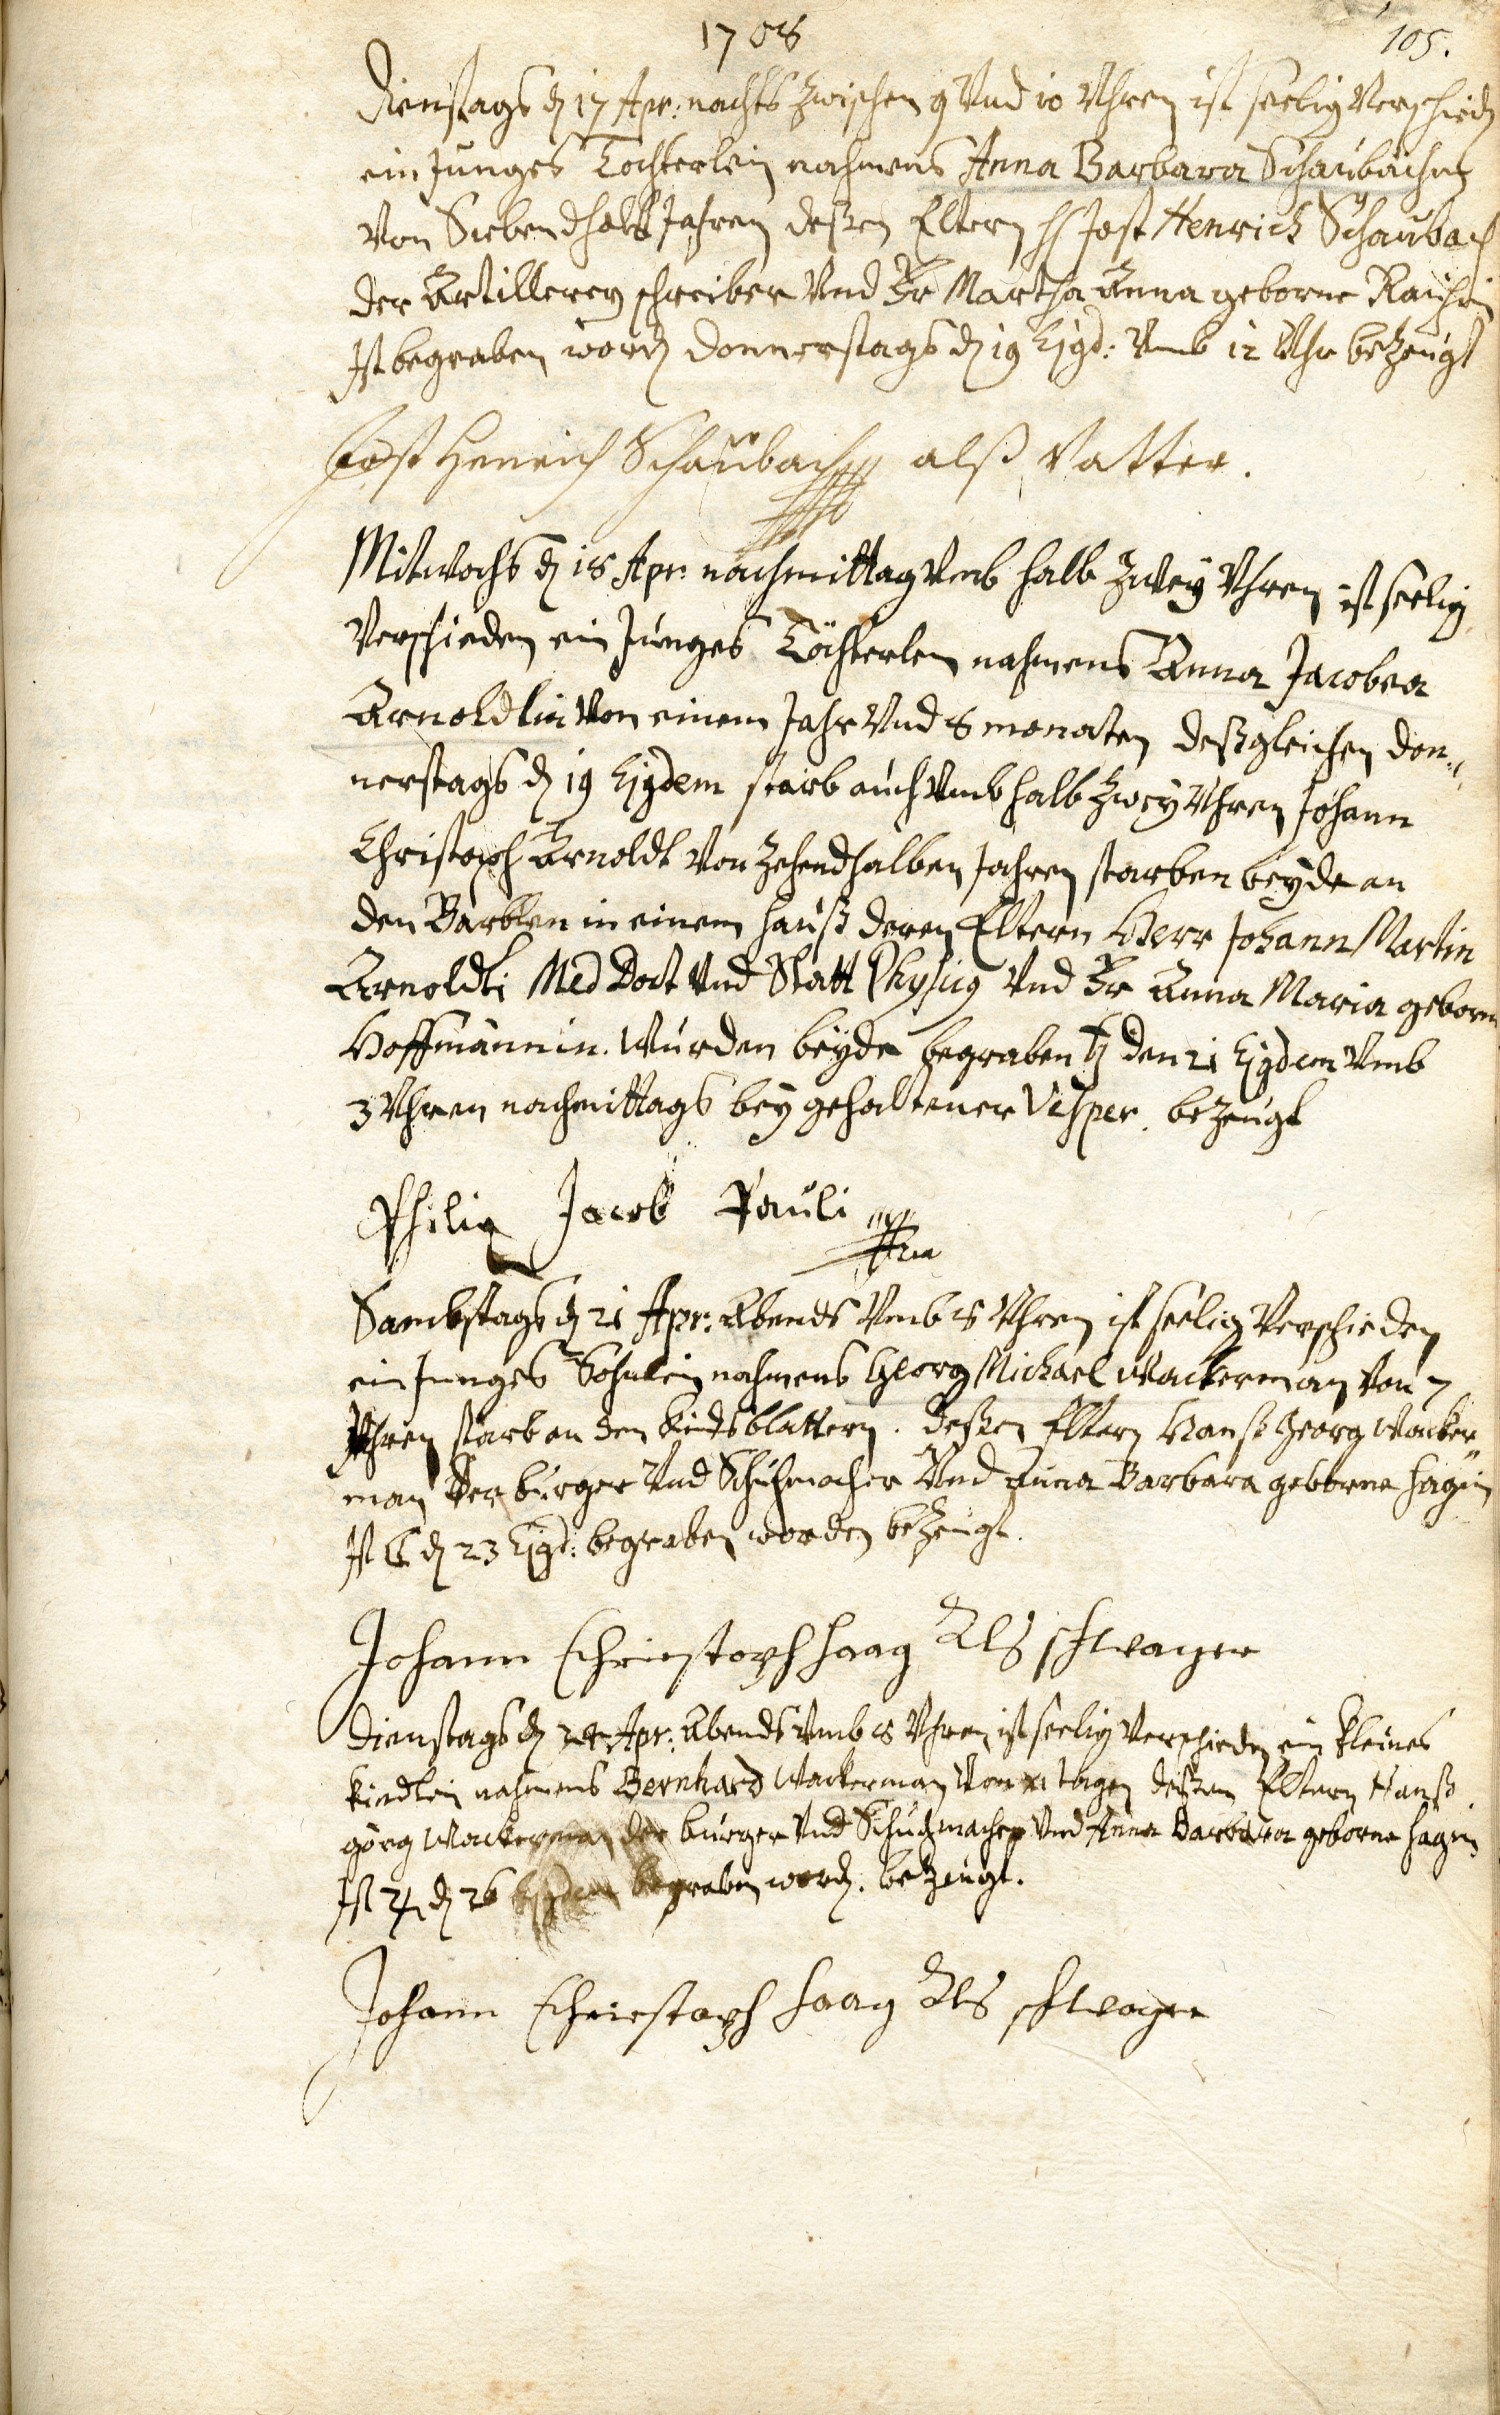 1708
105.
Dienstags d 17 Apr: nachts zwischen 9 Vnd 10 Vhren ist seelig Verschied
ein Junges Tochterlein nahmens Anna Barbara Schaubachin
Von Siebendhalb Jahren deßen Eltern H Jost Henrich Schaubach
der Artillerey schreiber Vnd Fr Martha Anna geborne
Ist begraben word Donnerstags d 19 Ejgd: Vmb 12 Uhr bezeugt
Jost Henrich Schaubach alß Vatter.
Mitwochs d 18 Apr: nachmittag Vmb halb zwey Vhren ist seelig
Verschieden ein Junges Töchterlen nahmens Anna Jacobea
Arnoldtin Von einem Jahr Vnd 8 monaten deßgleichen don-
nerstags d 19 Ejgdem starb auch Vmb halb zwey Vhren Johann
Christoph Arnoldt Von zehendhalben Jahren starben beyde an
den in einem hauß deren Eltern Herr Johann Martin
Arnoldti Med Doct Vnd Statt Physicg Vnd Fr Anna Maria geborne
Hoffmännin. Wurden beyde begraben ♄ den 21 Ejgdem Vmb
3 Vhren nachmittags bey gehaltener Vesper. bezeugt
Philip Jacob Pauli
Sambstags d 21 Apr: Abends Vmb 8 Vhren ist seelig Verschieden
ein Junges Sohnlein nahmens Georg Michael Wackerman Von 7
Jahren starb an den Kindsblattern. deßen Eltern Hanß Georg Wacker
man der burger Vnd Schuhmacher Vnd Anna Barbara geborne Hagin
Ist ☾ d 23 Ejgd: begraben worden bezeugt.
Johann Chriestoph Haag Als schwager
Dienstags d 24 Apr: Abends Vmb 8 Vhren ist seelig Verschieden ein kleines
Kindlein nahmens Bernhard Wackerman Von 11 tagen deßen Eltern Hanß
görg Wackerman der burger Vnd Schuhmacher Vnd Anna Barbara geborne Hagin
Ist ♃ d 26 begraben word. bezeugt.
Johann Chriestoph Haag Als schwager